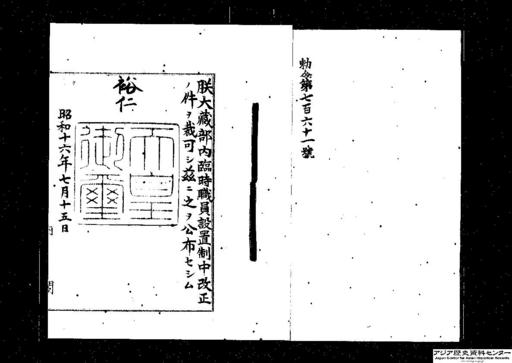 勅令第七百六十一號
朕大藏部内臨時職員設置制中改正
ノ件ヲ裁可シ茲ニ之ヲ公布セシム
裕仁
天皇御璽
昭和十六年七月十五日
アジア歴史資料センター
Japan Center for Asian Historical Records